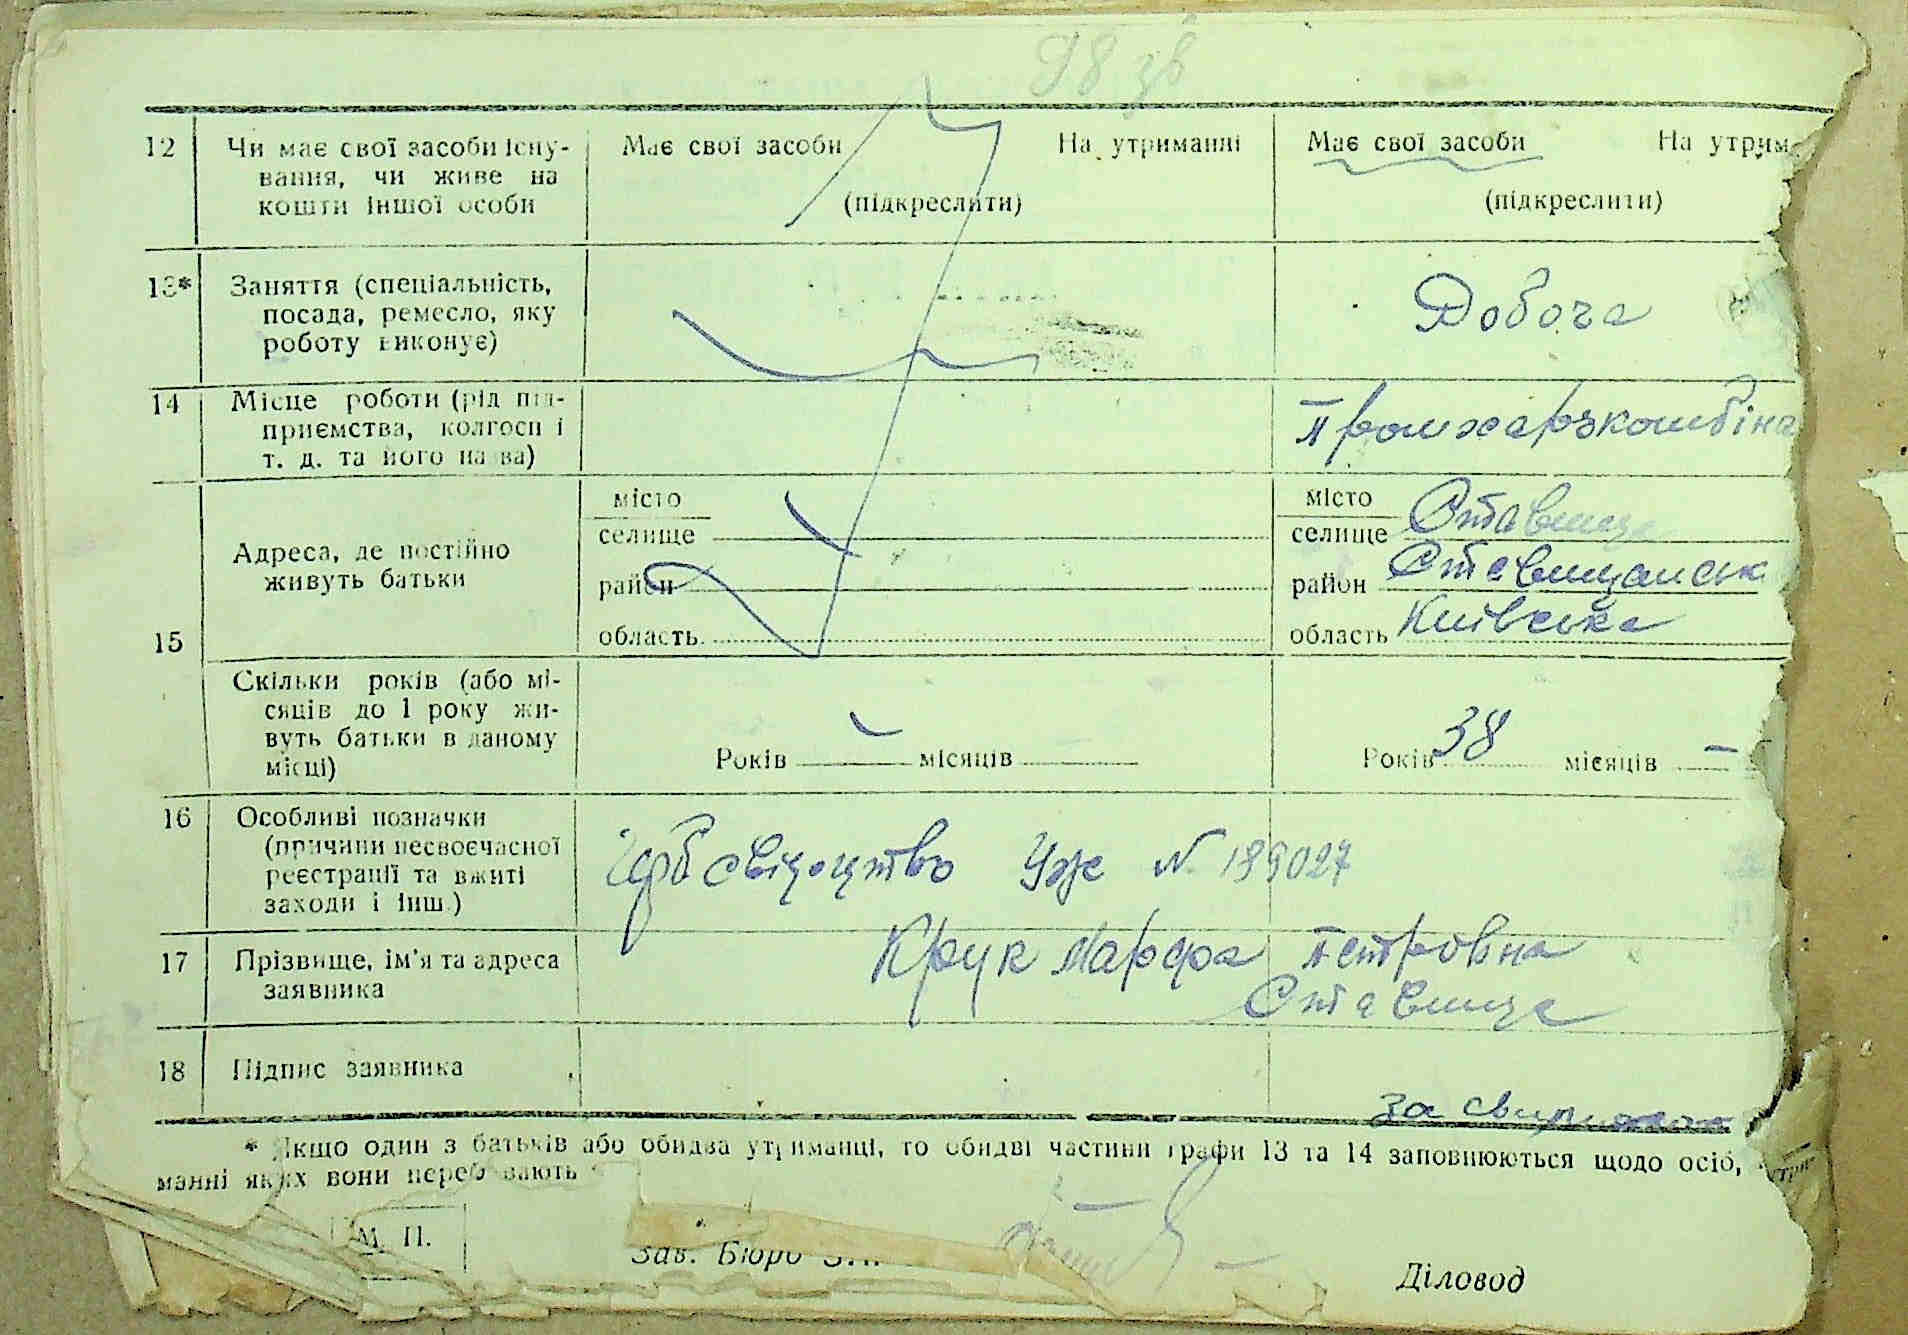 98 зв
12
Чи має свої засоби існу-
вання, чи живе на
кошти іншої особи
Має свої засоби На утриманні
(підкреслити)
Має свої засоби На утрим
(підкреслити)
13*
Заняття (спеціальність,
посада, ремесло, яку
роботу виконує)
Робоча
14
Місце роботи (рід під-
приємства, колгосп і
т. д. та його назва)
Промхарчкомбіна
15
Адреса, де постійно
живуть батьки
місто
селище
район
область
місто
селище Ставище
район Ставищанськ
область Київська
Скільки років (або мі-
сяців до 1 року жи-
вуть батьки в даному
місці)
Років місяців
Років 38 місяців —
16
Особливі позначки
(причини несвоєчасної
реєстрації та вжиті
заходи і інш.)
свідоцтво УЖ № 189027
17
Прізвище, ім'я та адреса
заявника
Крук Марфа Петровна
Ставище
18
Підпис заявника
за
* Якщо один з батьків або обидва утриманці, то обидві частини графи 13 та 14 заповнюються щодо осіб,
манні яких вони перебувають
М. П.
Зав. Бюро
Діловод